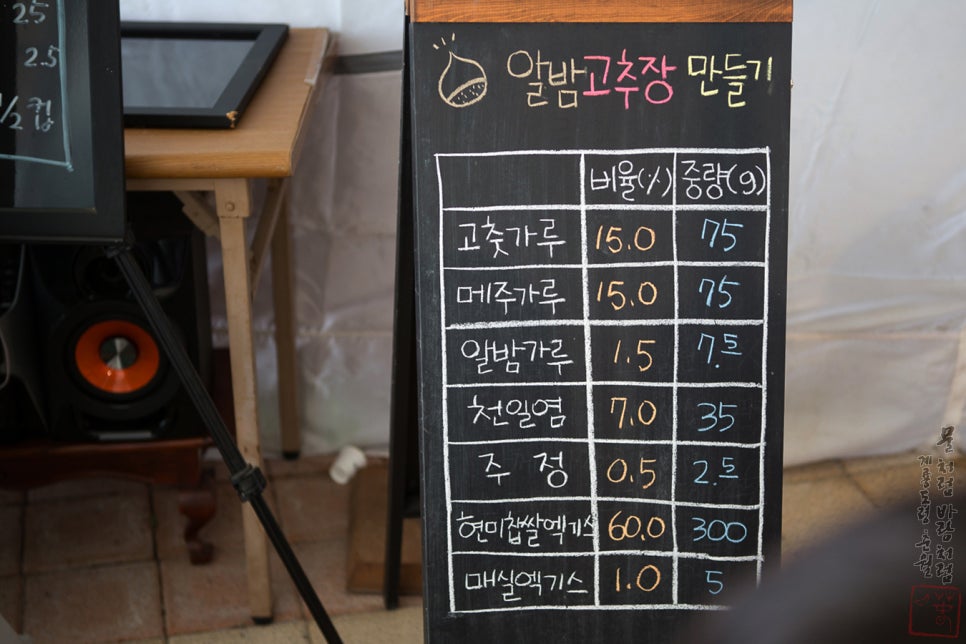 25
2.5
1/2 컵
알밤고추장 만들기
비율(%) 중량(g)
고춧가루 15.0 75
메주가루 15.0 75
알밤가루 1.5 7.5
천일염 7.0 35
주정 0.5 2.5
현미찹쌀엑기스 60.0 300
매실엑기스 1.0 5
물처럼 바람처럼
계룡도령춘월